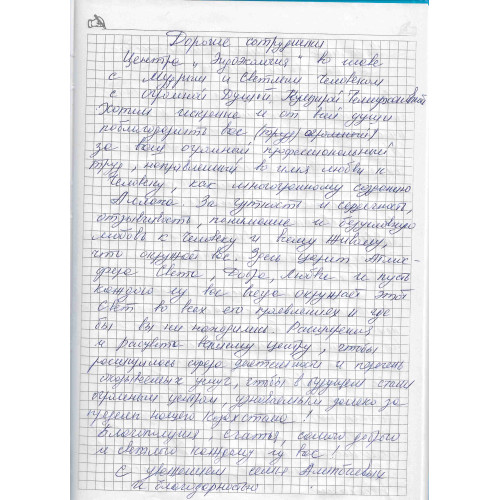 Дорогие сотрудники
Центра „Эдожания" во главе
с Мудрым и Светлым Человеком
с огромной Душой,
Хотим искренне и от всей души
поблагодарить вас (труд огромный)
за ваш огромный профессиональный
труд, направленный во имя любви к
Человеку, как многогранному созданию
Аллаха. За чуткость и сердечность,
отзывчивость, понимание и безусловную
любовь к Человеку и всему Живому,
что окружает Вас. Здесь царит Атмос-
фера Света, Добра, Любви и пусть
каждого из вас всегда окружает этот
Свет во всех его проявлениях и где
бы вы ни находились. Расширения
и расцвета вашему центру, чтобы
расширилась сфера деятельности и перечень
оказываемых услуг, чтобы в будущем стали
огромным центром, узнаваемым далеко за
пределы нашего Казахстана!
Благополучия, счастья, самого доброго
и светлого каждому из вас!
С уважением семья
и благодарностью